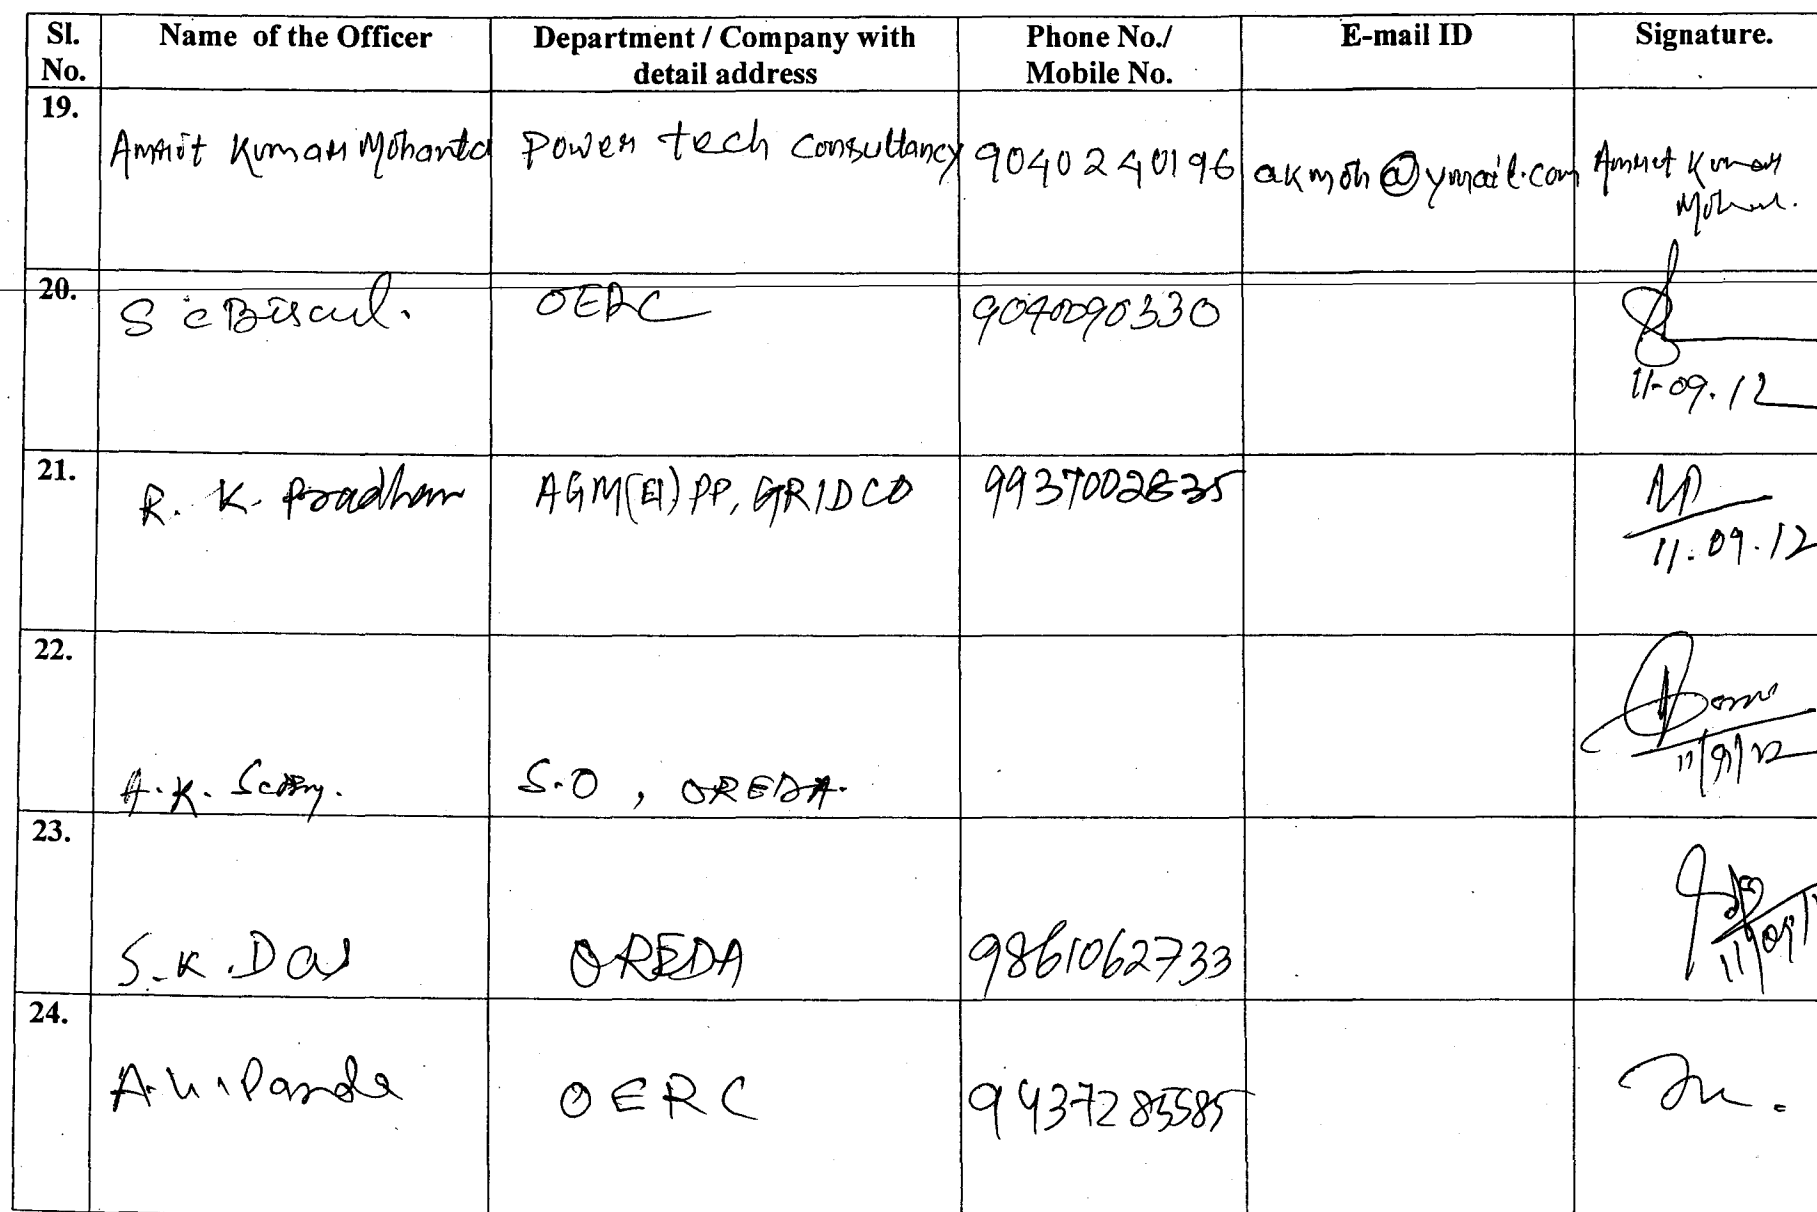 Sl. No. Name of the Officer Department / Company with detail address Phone No./ Mobile No. E-mail ID Signature.
19. Amrit Kumar Mohanta Power tech Consultancy 9040240196 akmoh@ymail.com Amrit Kumar
20. S C OERC 9040090330
11-09.12
21. R. K. Pradhan AGM(El) PP, GRIDCO 11.09.12
22. 11/9/12
A.K. S.O, OREDA.
23. S.K. Das OREDA 9861062733
24. Panda OERC